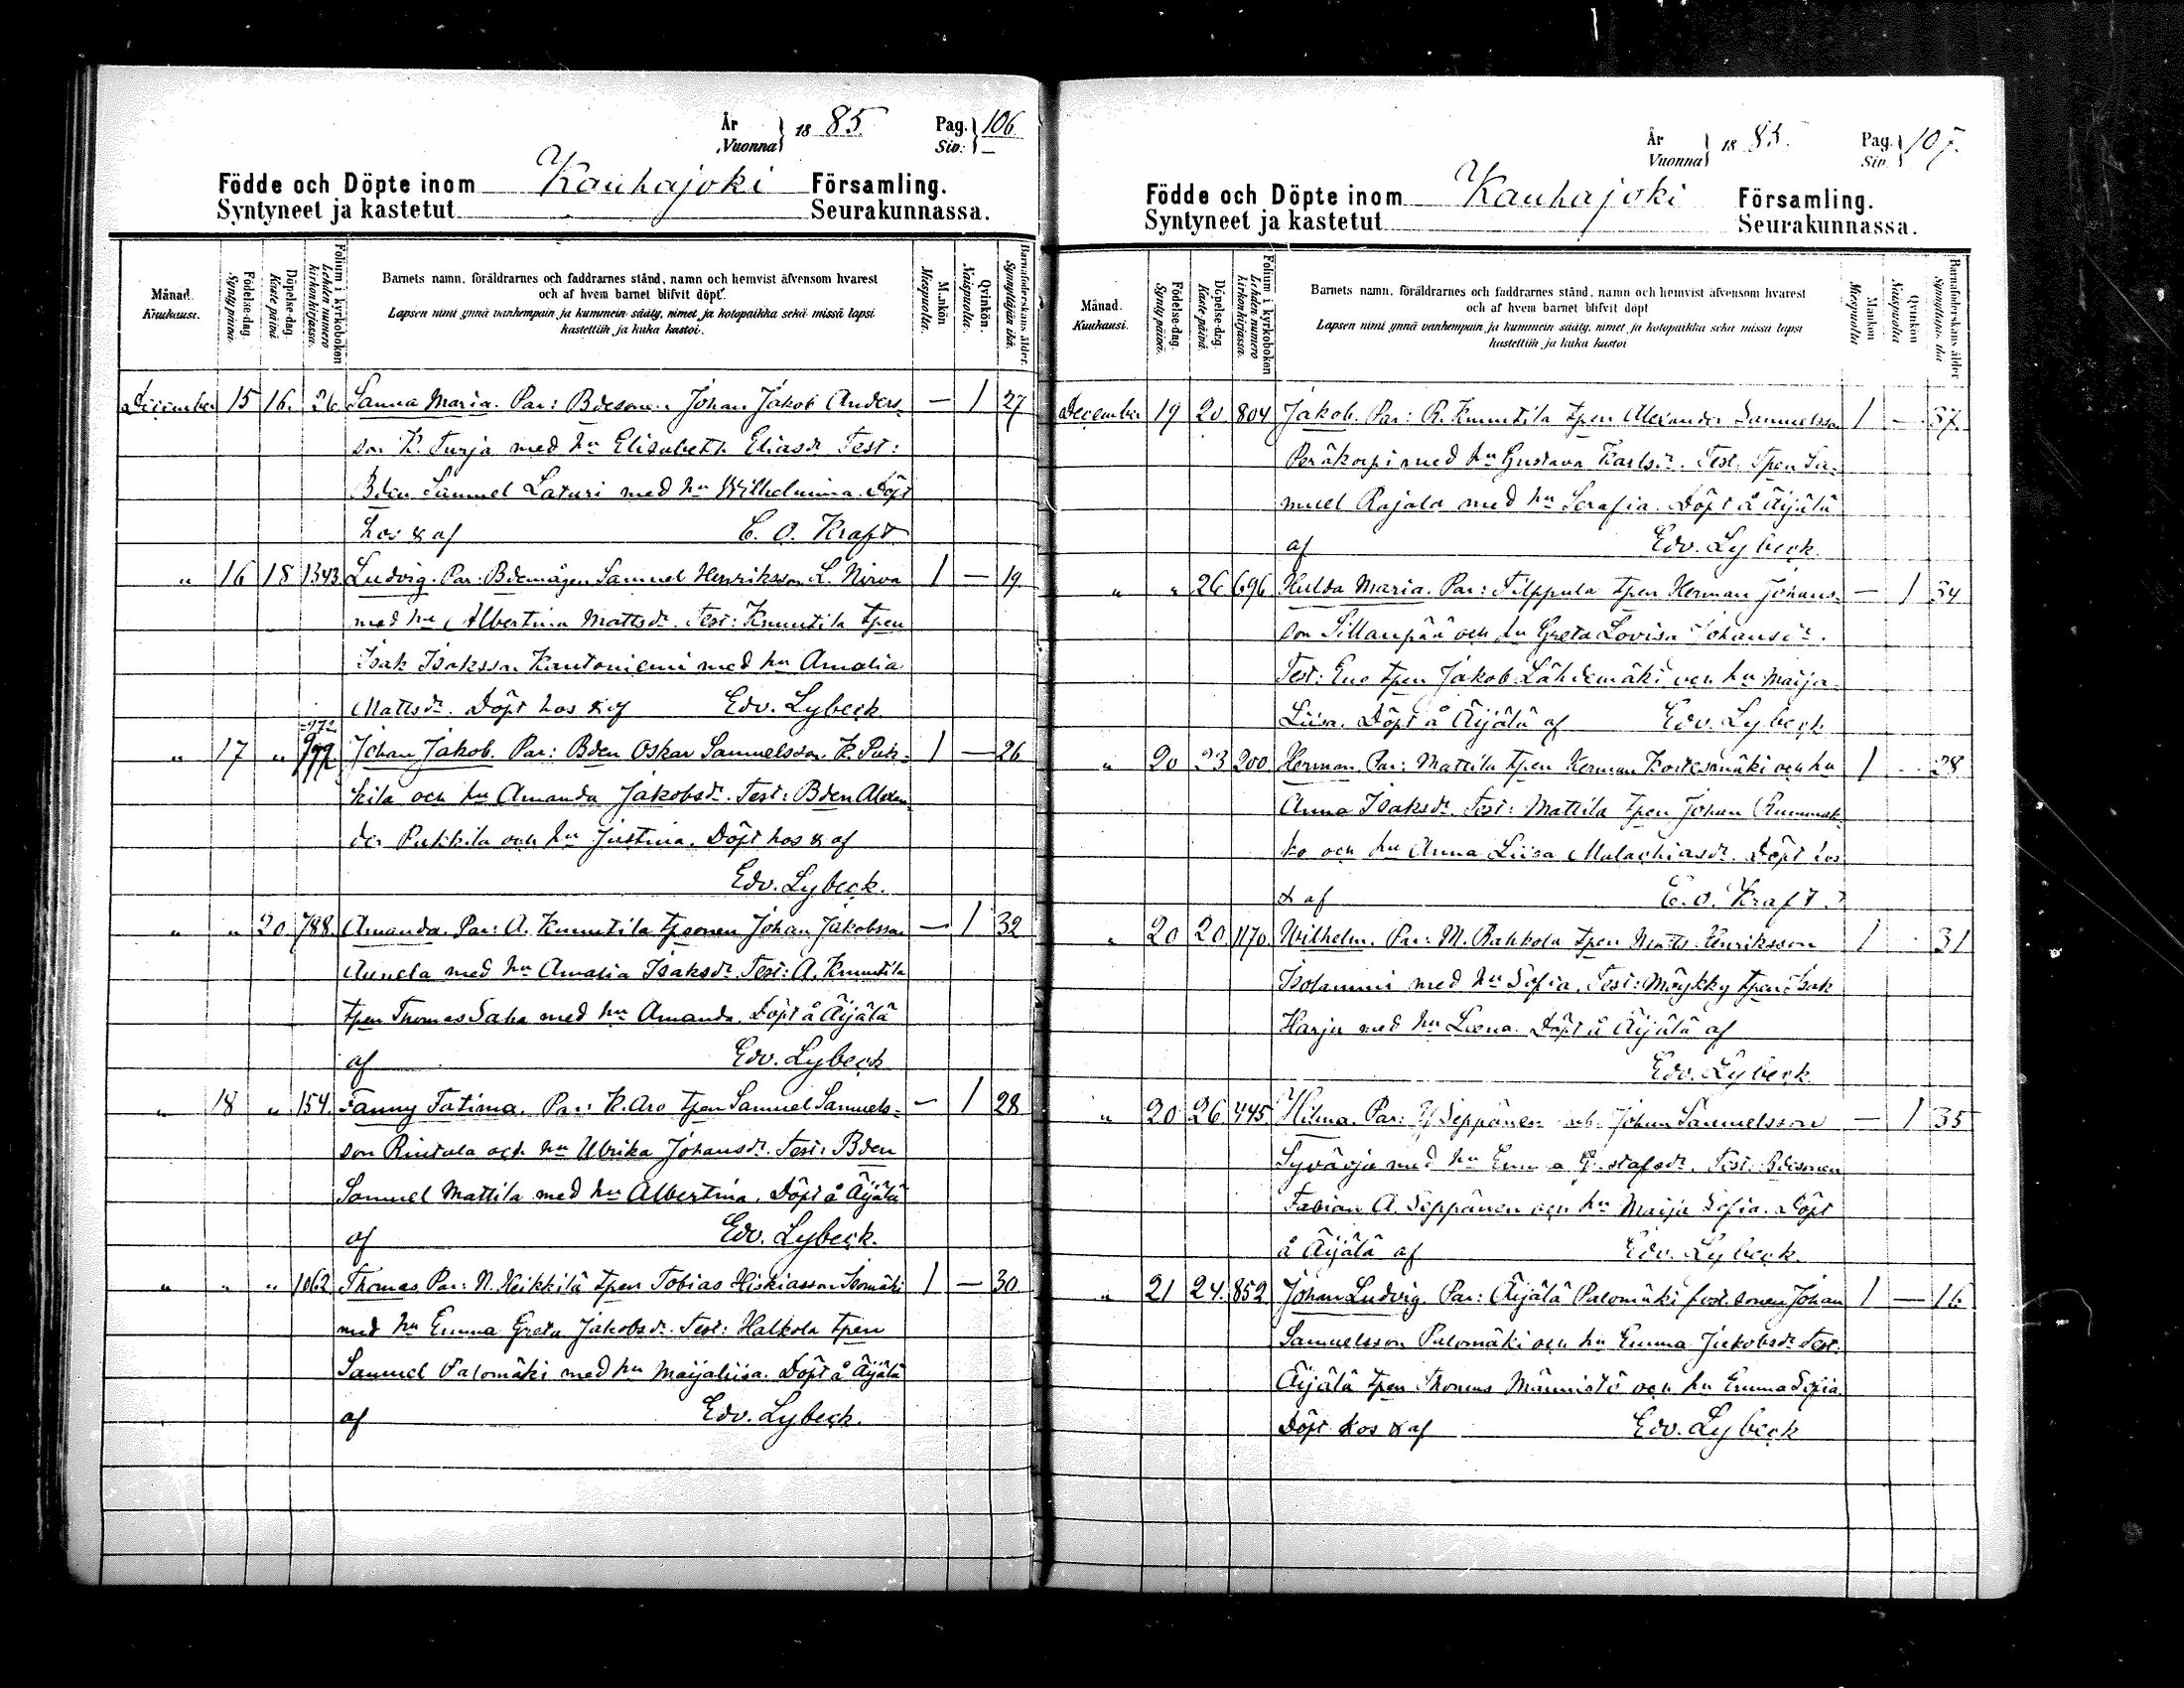 År
Vuonna } 18 85. Pag. Siv: } 106
Födde och Döpte inom Kauhajoki Församling.
Syntyneet ja kastetut Seurakunnassa.
Månad. Kuukausi.
Födelse-dag. Synty päivä.
Döpelse-dag Kaste päivä
Folium i kyrkoboken Lehden numero kirkonkirjassa.
Barnets namn, föräldrarnes och faddrarnes stånd, namn och hemvist äfvensom hvarest
och af hvem barnet blifvit döpt.
Lapsen nimi ynnä vanhempain ja kummein sääty, nimet ja kotopaikka sekä missä lapsi
kastettiin ja kuka kastoi.
Mankön Miespuolia.
Qvinkön. Naispuolia.
Barnaföderskans ålder. Synnyttäjän ikä.
December 15 16. 26 Sanna Maria. Par: Bdesonen Johan Jakob Anders- — 1 27
son K. Turja med hu Elisabeth Eliasdr. Test:
Bden Samuel Laturi med hu Wilhelmina. Döpt
hos & af C. O. Kraft
" 16 18 1343 Ludvig. Par. Bdemågen Samuel Henriksson L. Nirva 1 — 19
med hu Albertina Mattsdr. Test: Knuutila tpen
Isak Isaksson Kantoniemi med hu Amalia
Mattsdr. Döpt hos & af Edv. Lybeck.
" 17 " 972 Johan Jakob. Par: Bden Oskar Samuelsson K. Puk- 1 — 26
kila och hu Amanda Jakobsdr. Test: Bden Alexan-
der Pukkila och hu Justina. Döpt hos & af
Edv. Lybeck.
" " 20 788 Amanda. Par: A. Knuutila tpsonen Johan Jakobsson — 1 32
Aunela med hu Amalia Isaksdr. Test: A. Knuutila
tpen Thomas Saha med hu Amanda. Döpt å Äijälä
af Edv. Lybeck
" 18 " 154. Fanny Fatima. Par: K. Aro tpen Samuel Samuels- — 1 28
son Rintala och hu Ulrika Johansdr. Test: Bden
Samuel Mattila med hu Albertina. Döpt å Äijälä
af Edv. Lybeck.
" " " 1062 Thomas Par: N. Heikkilä tpen Tobias Hiskiasson 1 — 30
med hu Emma Greta Jakobsdr. Test: Halkola tpen
Samuel Palomäki med hu Maijaliisa. Döpt å Äijälä
af Edv. Lybeck.
År
Vuonna } 18 85. Pag. Siv. } 107.
Födde och Döpte inom Kauhajoki Församling.
Syntyneet ja kastetut Seurakunnassa.
Månad. Kuukausi.
Födelse-dag. Synty päivä.
Döpelse-dag. Kaste-päivä.
Folium i kyrkoboken Lehden numero kirkonkirjassa.
Barnets namn, föräldrarnes och faddrarnes stånd, namn och hemvist äfvensom hvarest
och af hvem barnet blifvit döpt
Lapsen nimi ynnä vanhempain ja kummein sääty, nimet ja kotopaikka sekä missä lapsi
kastettiin ja kuka kastoi
Mankön Miespuolia
Qvinkön Naispuolia
Barnaföderskans ålder Synnyttäjän ikä
December 19 20 804 Jakob. Par: R. Knuutila tpen Alexander Samuelsson 1 — 37.
Peräkorpi med hu Gustava Karlsdr. Test. tpen Sa-
muel Rajala med hu Serafia. Döpt å Äijälä
af Edv. Lybeck.
" " 26 696 Hulda Maria. Par: Filppula tpen Herman Johans- — 1 34
son Sillanpää och hu Greta Lovisa Johansdr.
Test: Eno tpen Jakob Lähdemäki och hu Maija
Liisa. Döpt å Äijälä af Edv. Lybeck
" 20 23 200 Herman. Par: Mattila tpen Herman Koskesmäki och hu 1 — 28
Anna Isaksdr. Test: Mattila tpen Johan Rummuk-
ko och hu Anna Liisa Malachiasdr. Döpt hos
& af C. O. Kraft.
" 20 20 1170 Wilhelm. Par: M. Rahkola tpen Matts Henriksson 1 — 31
Isotammi med hu Sofia. Test: Möykky tpen Isak
Harju med hu Leena. Döpt å Äijälä af
Edv. Lybeck
" 20 26. 445. Hilma. Par: Y. Seppänen Johan Samuelsson — 1 35
Syväoja med hu Emma Gustafsdr. Test. Bdesonen
Fabian A. Seppänen och hu Maija Sofia. Döpt
å Äijälä af Edv. Lybeck.
" 21 24. 852 Johan Ludvig Par: Äijälä Palomäki sonen Johan 1 — 16
Samuelsson Palomäki och hu Emma Jakobsdr Test.
Äijälä tpen Thomas Männistö och hu Emma Sofia
Döpt hos & af Edv. Lybeck